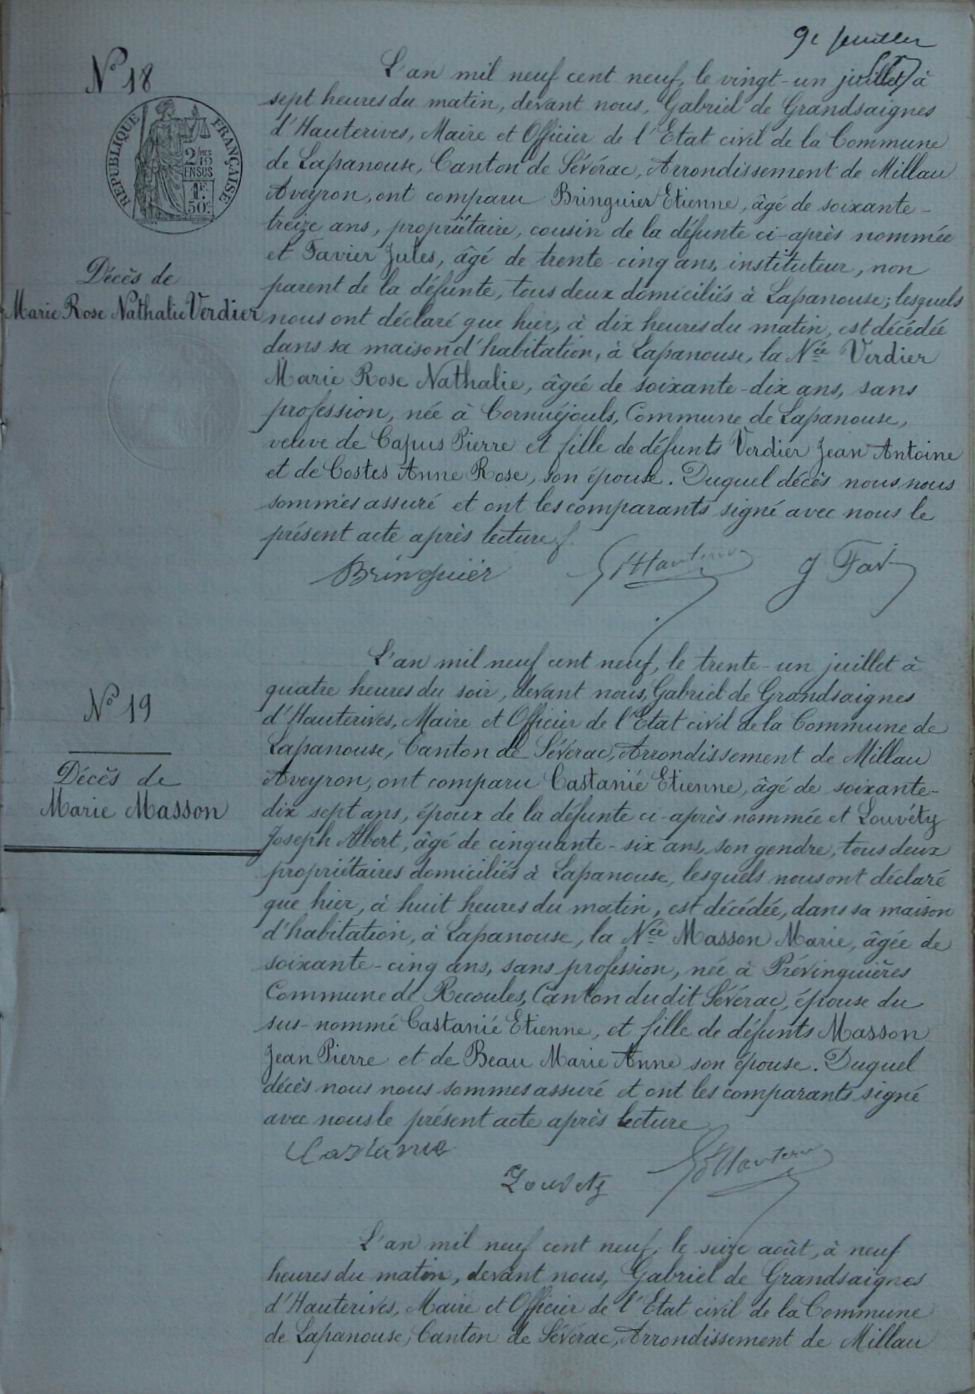 9e feuillet
N° 18
RÉPUBLIQUE FRANÇAISE
2 10mes
EN SUS
1F
50c
Décès de
Marie Rose Nathalie Verdier
L'an mil neuf cent neuf, le vingt-un juillet à
sept heures du matin, devant nous, Gabriel de Grandsaignes
d'Hauterives, Maire et Officier de l'Etat civil de la Commune
de Lapanouse, Canton de Sévérac, Arrondissement de Millau
Aveyron, ont comparu Bringuier Etienne, âgé de soixante-
treize ans, propriétaire, cousin de la défunte ci-après nommée
et Favier Jules, âgé de trente cinq ans, instituteur, non
parent de la défunte, tous deux domiciliés à Lapanouse; lesquels
nous ont déclaré que hier, à dix heures du matin, est décédée
dans sa maison d'habitation, à Lapanouse, la Née Verdier
Marie Rose Nathalie, âgée de soixante-dix ans, sans
profession, née à Cornuéjouls, Commune de Lapanouse,
veuve de Capus Pierre et fille de défunts Verdier Jean Antoine
et de Costes Anne Rose, son épouse. Duquel décès nous nous
sommes assuré et ont les comparants signé avec nous le
présent acte après lecture
Bringuier G d'Hauterives J Fav
N° 19
Décès de
Marie Masson
L'an mil neuf cent neuf, le trente-un juillet à
quatre heures du soir, devant nous, Gabriel de Grandsaignes
d'Hauterives, Maire et Officier de l'Etat civil de la Commune de
Lapanouse, Canton de Sévérac, Arrondissement de Millau
Aveyron, ont comparu Castanié Etienne, âgé de soixante-
dix sept ans, époux de la défunte ci-après nommée et Louvéty
Joseph Albert, âgé de cinquante-six ans, son gendre, tous deux
propriétaires domiciliés à Lapanouse, lesquels nous ont déclaré
que hier, à huit heures du matin, est décédée, dans sa maison
d'habitation, à Lapanouse, la Née Masson Marie, âgée de
soixante-cinq ans, sans profession, née à Prévinquières
Commune de Recoules, Canton du dit Sévérac, épouse du
sus-nommé Castanié Etienne, et fille de défunts Masson
Jean Pierre et de Beau Marie Anne son épouse. Duquel
décès nous nous sommes assuré et ont les comparants signé
avec nous le présent acte après lecture
Castanié
Louvety G d'Hauterives
L'an mil neuf cent neuf, le seize août, à neuf
heures du matin, devant nous, Gabriel de Grandsaignes
d'Hauterives, Maire et Officier de l'Etat civil de la Commune
de Lapanouse, Canton de Sévérac, Arrondissement de Millau